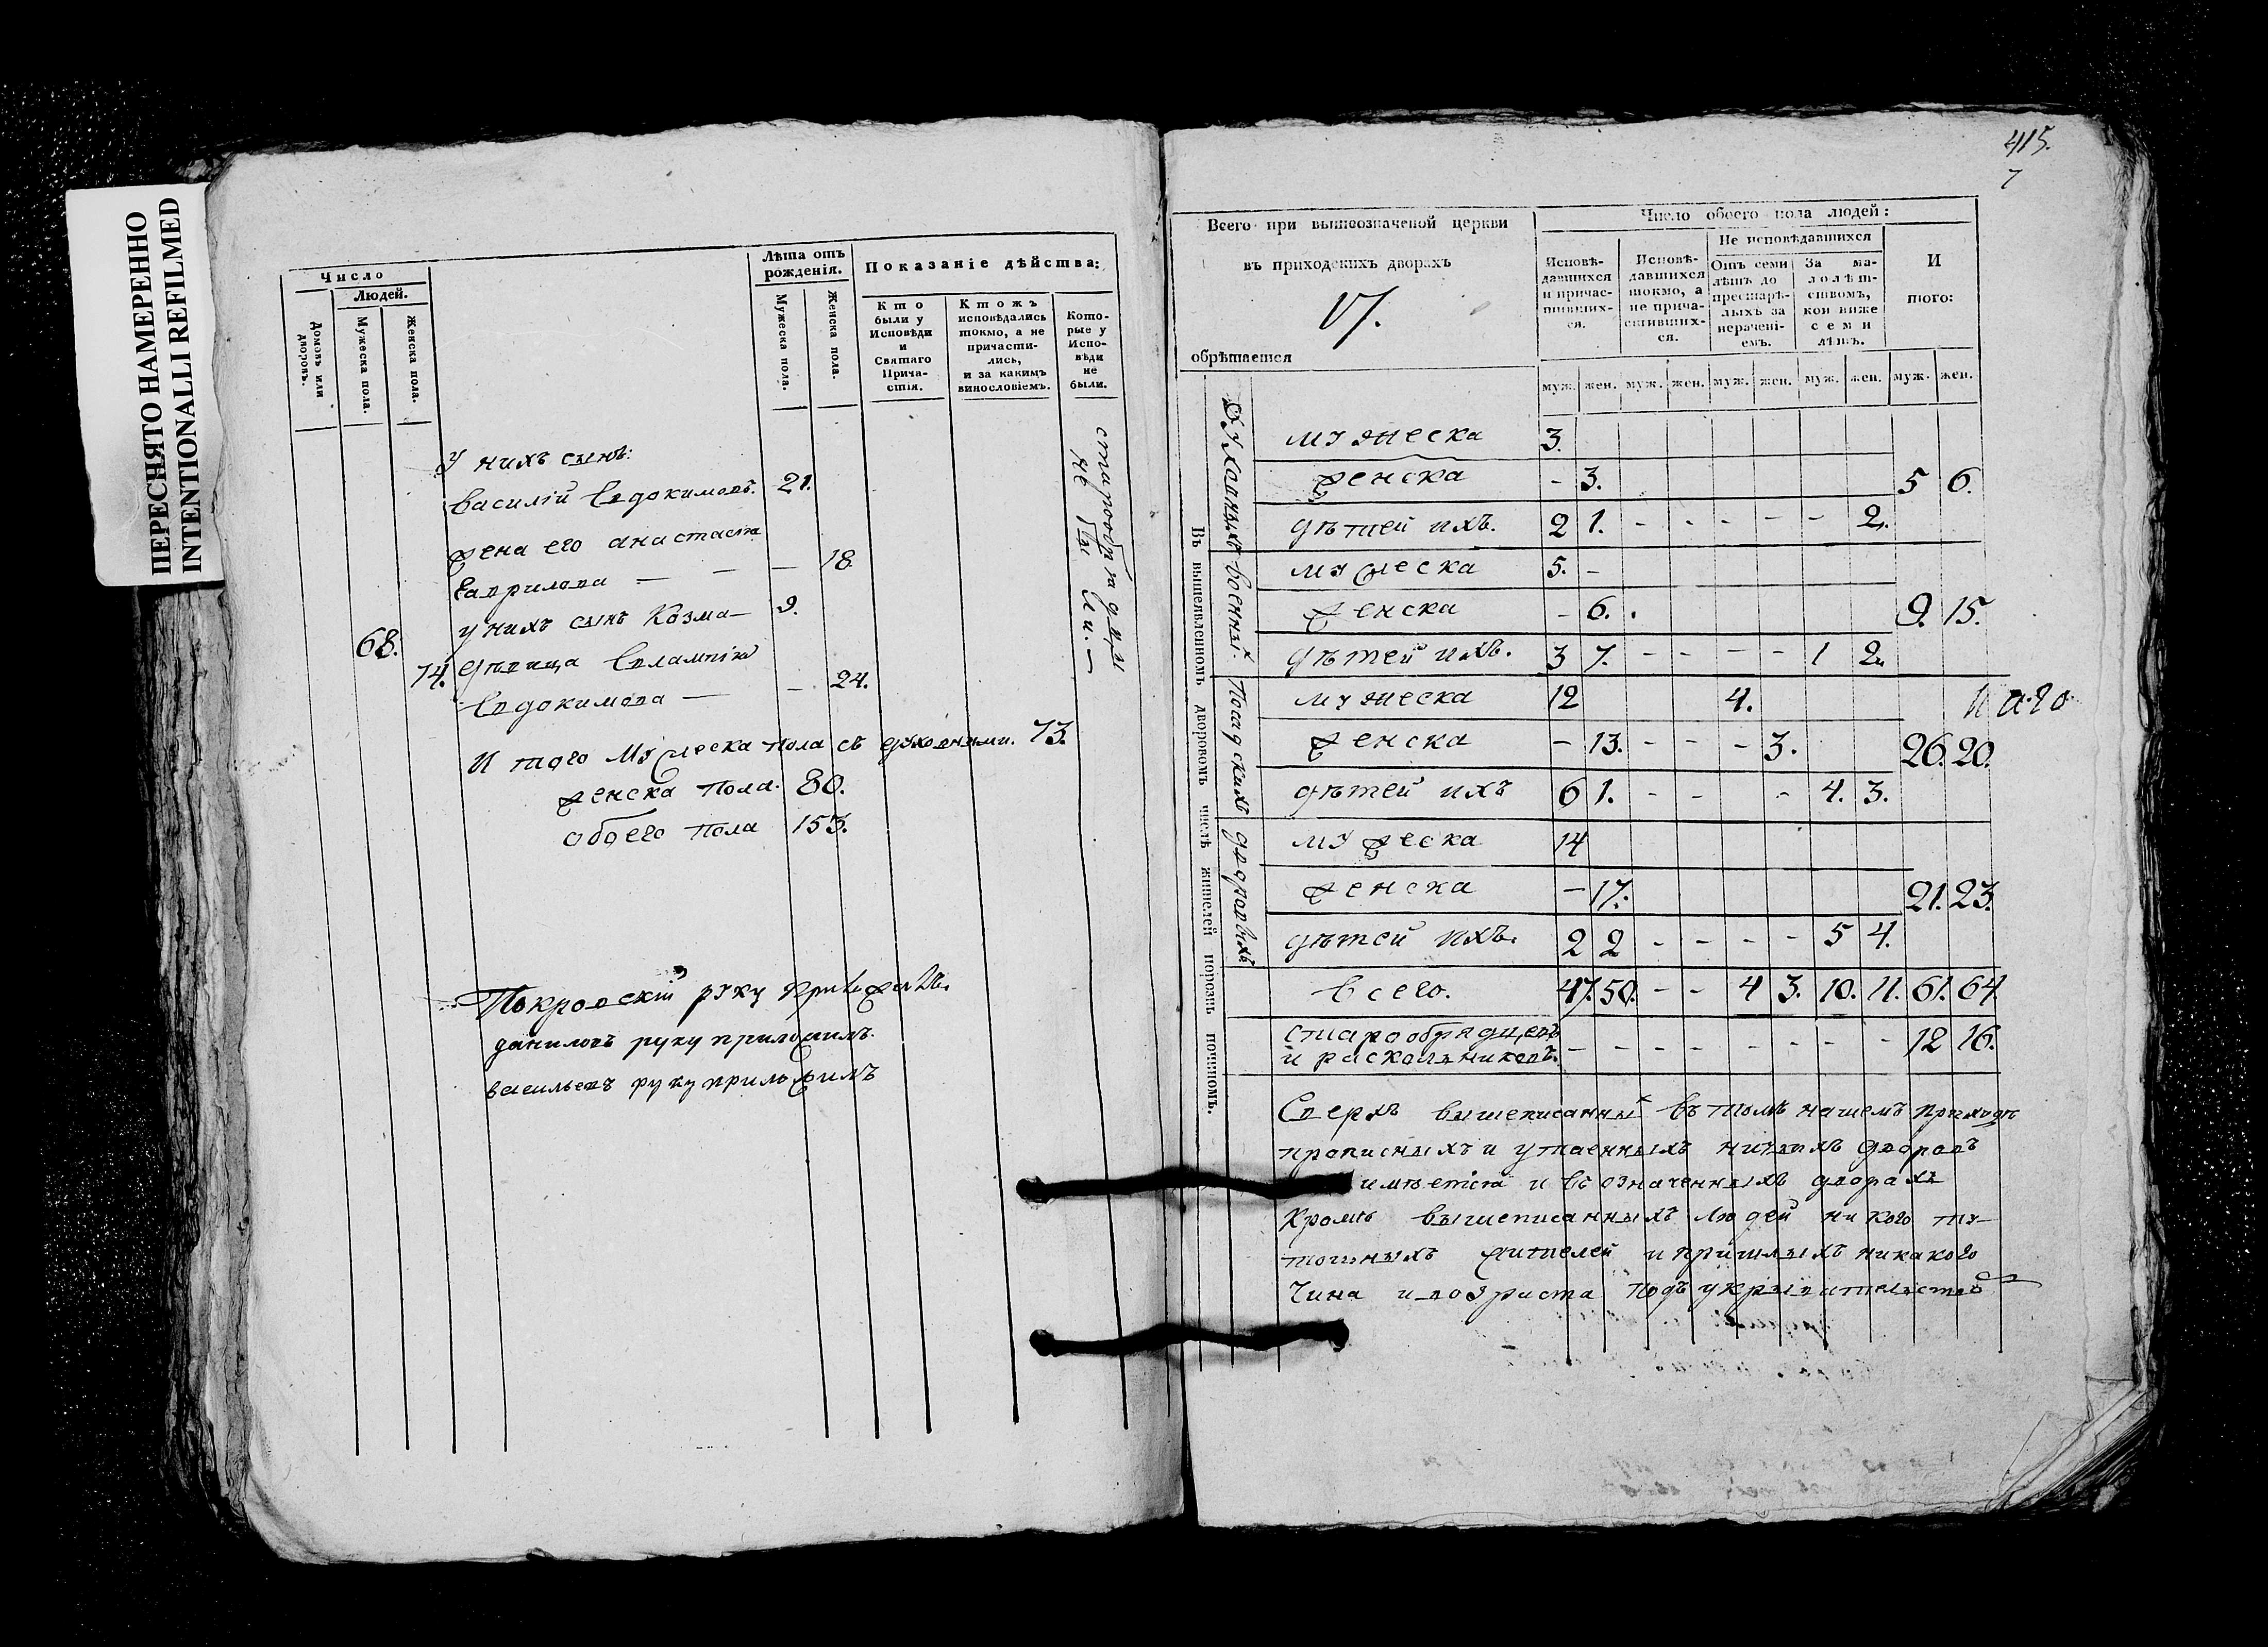 ПЕРЕСНЯТО НАМЕРЕННО
INTENTIONALLI REFILMED
Число
Людей.
Домовъ или дворовъ.
Мужеска пола.
Женска пола.
Лѣта отъ рожденія.
Мужеска пола.
Женска пола.
Показаніе дѣйства:
Кто были у Исповѣди и Святаго Причастія.
Ктожъ исповѣдались токмо, а не причастились, и за какимъ винословіемъ.
Которые у Исповѣди не были.
У нихъ сынъ:
Василій Евдокимовъ. 21.
жена его анастасіа
Гаврилова — — — 18
у нихъ сынъ Козма — 9.
68. 74. дѣвица Евлампіа
Евдокимова — — 24.
старообрядцы
не были. —
И того мужеска пола съ духовными. 73.
женска пола. 80.
обоего пола 153.
Покровскій руку приложилъ.
даниловъ руку приложилъ.
васильевъ руку приложилъ
415.
7
Всего при вышеозначеной церкви
въ приходскихъ дворахъ
обрѣтается
Число обоего пола людей:
Исповѣдавшихся и причастившихся.
Исповѣдавшихся токмо, а не причастившихся.
Не исповѣдавшихся
Отъ семи лѣтъ до престарѣлыхъ за нерачені-емъ.
За малолѣтствомъ, кои ниже семи лѣтъ.
И того:
муж. жен. муж. жен. муж. жен. муж. жен. муж. жен.
Въ вышеявленномъ дворовомъ числѣ жителей порознь почином.
Духовныхъ
мужеска 3.
женска - 3. 5 6.
дѣтей ихъ. 2 1. - - - - - 2.
Военныхъ
мужеска 5. -
женска - 6. 9. 15.
дѣтей ихъ. 3 7. - - - - 1 2.
Посадскихъ
мужеска 12 4.
женска - 13. - - - 3. 26. 20.
дѣтей ихъ 6 1. - - - 4. 3.
дворовыхъ
мужеска 14
женска - 17. 21. 23.
дѣтей ихъ. 2 2 - - - - 5 4.
Всего. 47. 50. - - 4 3. 10. 11. 61. 64
старообрядцевъ
и раскольниковъ. - - - - - - - - 12 16.
Сверхъ вышеписанныхъ въ томъ нашемъ приходѣ
прописныхъ и утаенныхъ ничьихъ дворовъ
имѣется и въ означенныхъ дворахъ
Кромѣ вышеписанныхъ людей никого ту-
тошныхъ жителей и пришлыхъ никакого
Чина и возраста подъ укрывательствомъ